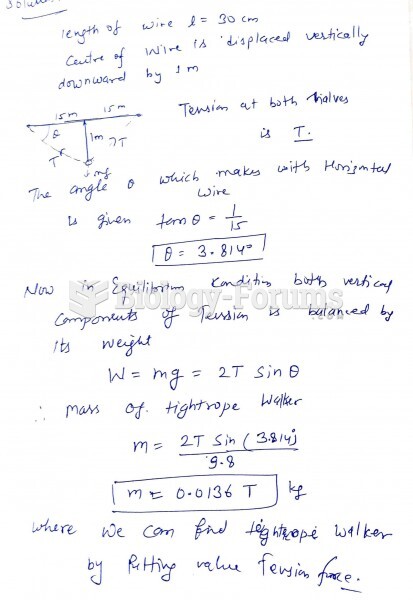 Solution
length of wire l = 30 cm
Centre of wire is displaced vertically
downward by 1 m
15m 15m
θ 1m T
T
mg
Tension at both halves
is T.
The angle θ which makes with Horizontal
wire
is given tan θ = 1/15
θ = 3.814°
Now in Equilibrium Condition both vertical
Components of Tension is balanced by
Its weight
Biology-Forums
.COM
W = mg = 2T Sin θ
∴ mass of tightrope walker
m = 2T Sin (3.814)/9.8
m = 0.0136 T kg
where we can find tightrope walker
by Putting value Tension force.